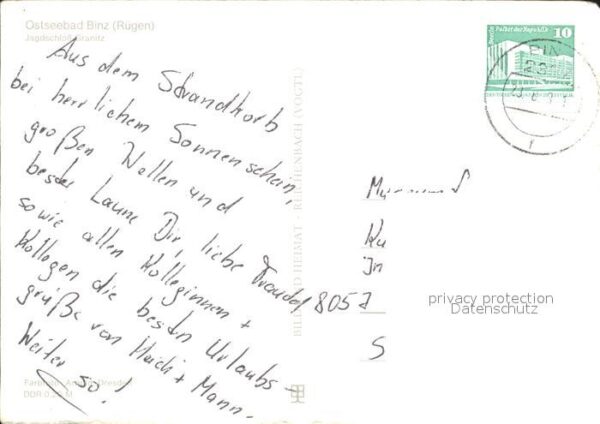 Ostseebad Binz (Rügen)
Jagdschloß Granitz
Aus dem Strandkorb
bei herrlichem Sonnenschein,
großen Wellen und
bester Laune Dir, liebe Traudel
sowie allen Kolleginnen +
Kollegen die besten Urlaubs-
grüße von Heidi + Mann.
Weiter so!
DDR 0,20 M
BILD UND HEIMAT · REICHENBACH (VOGTL)
Berlin, Palast der Republik
10
DDR
8057
privacy protection
Datenschutz